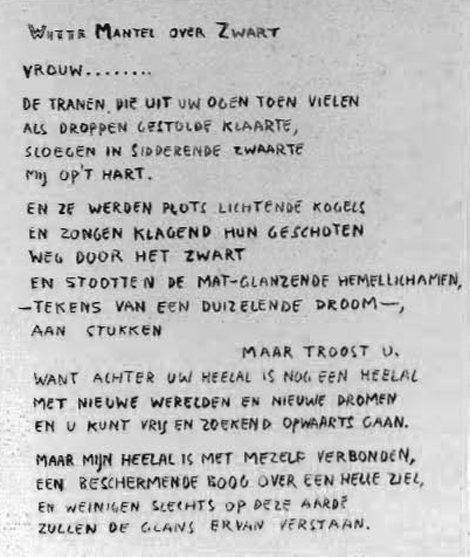 Witte Mantel over Zwart
VROUW........
DE TRANEN, DIE UIT UW OGEN TOEN VIELEN
ALS DROPPEN GESTOLDE KLAARTE,
SLOEGEN IN SIDDERENDE ZWAARTE
MIJ OP'T HART.
EN ZE WERDEN PLOTS LICHTENDE KOGELS
EN ZONGEN KLAGEND HUN GESCHOTEN
WEG DOOR HET ZWART
EN STOOTTEN DE MAT-GLANZENDE HEMELLICHAMEN,
—TEKENS VAN EEN DUIZELENDE DROOM—,
AAN STUKKEN
MAAR TROOST U.
WANT ACHTER UW HEELAL IS NOG EEN HEELAL
MET NIEUWE WERELDEN EN NIEUWE DROMEN
EN U KUNT VRIJ EN ZOEKEND OPWAARTS GAAN.
MAAR MIJN HEELAL IS MET MEZELF VERBONDEN,
EEN BESCHERMENDE BOOG OVER EEN HELLE ZIEL,
EN WEINIGEN SLECHTS OP DEZE AARDE
ZULLEN DE GLANS ERVAN VERSTAAN.